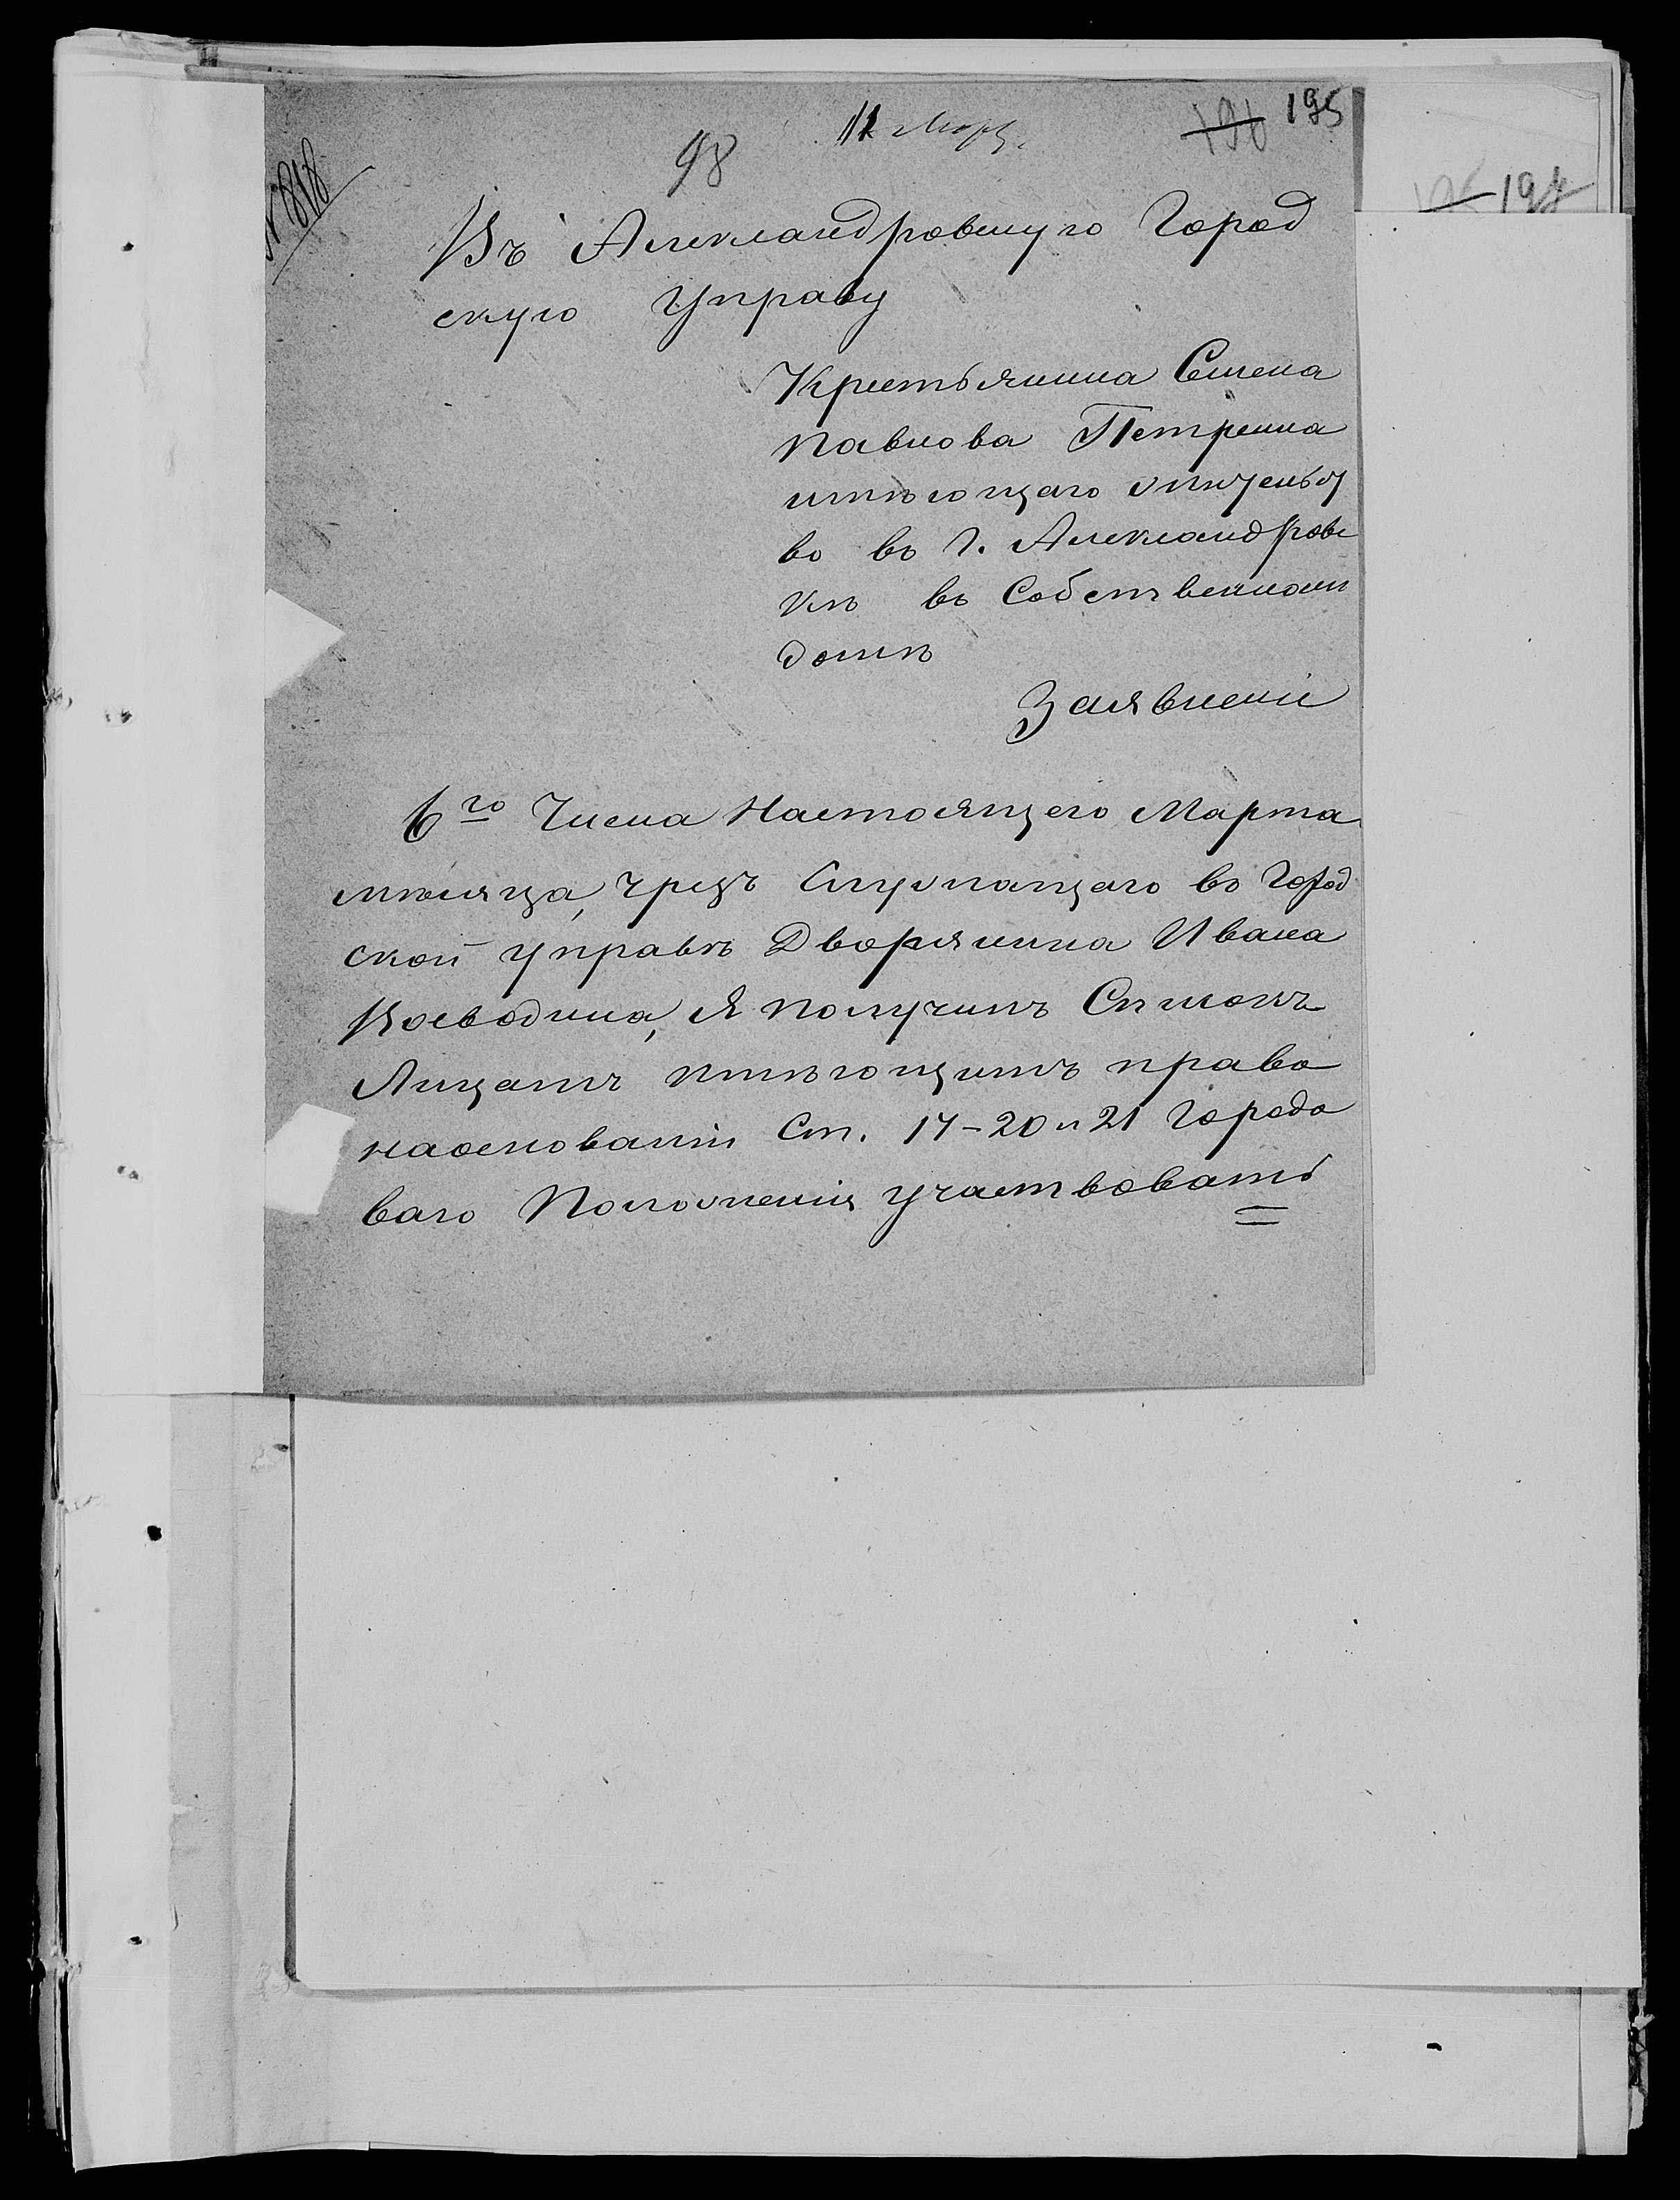 11 Марта
98
196 195
194
№ 818
Въ Александровскую Город
скую Управу
Крестьянина Семена
Павлова Петренка
имѣющаго жительст
во въ г. Александровс
кѣ въ Собственномъ
домѣ
Заявленіе
6го Числа Настоящего Марта
мѣсяца, чрезъ Служащаго въ Город
ской управѣ Дворянина Ивана
Воеводина, я получилъ Списокъ
Лицамъ имѣющимъ право
наоснованіи Ст. 17-20 и 21 Городо
ваго Положенія участвовать